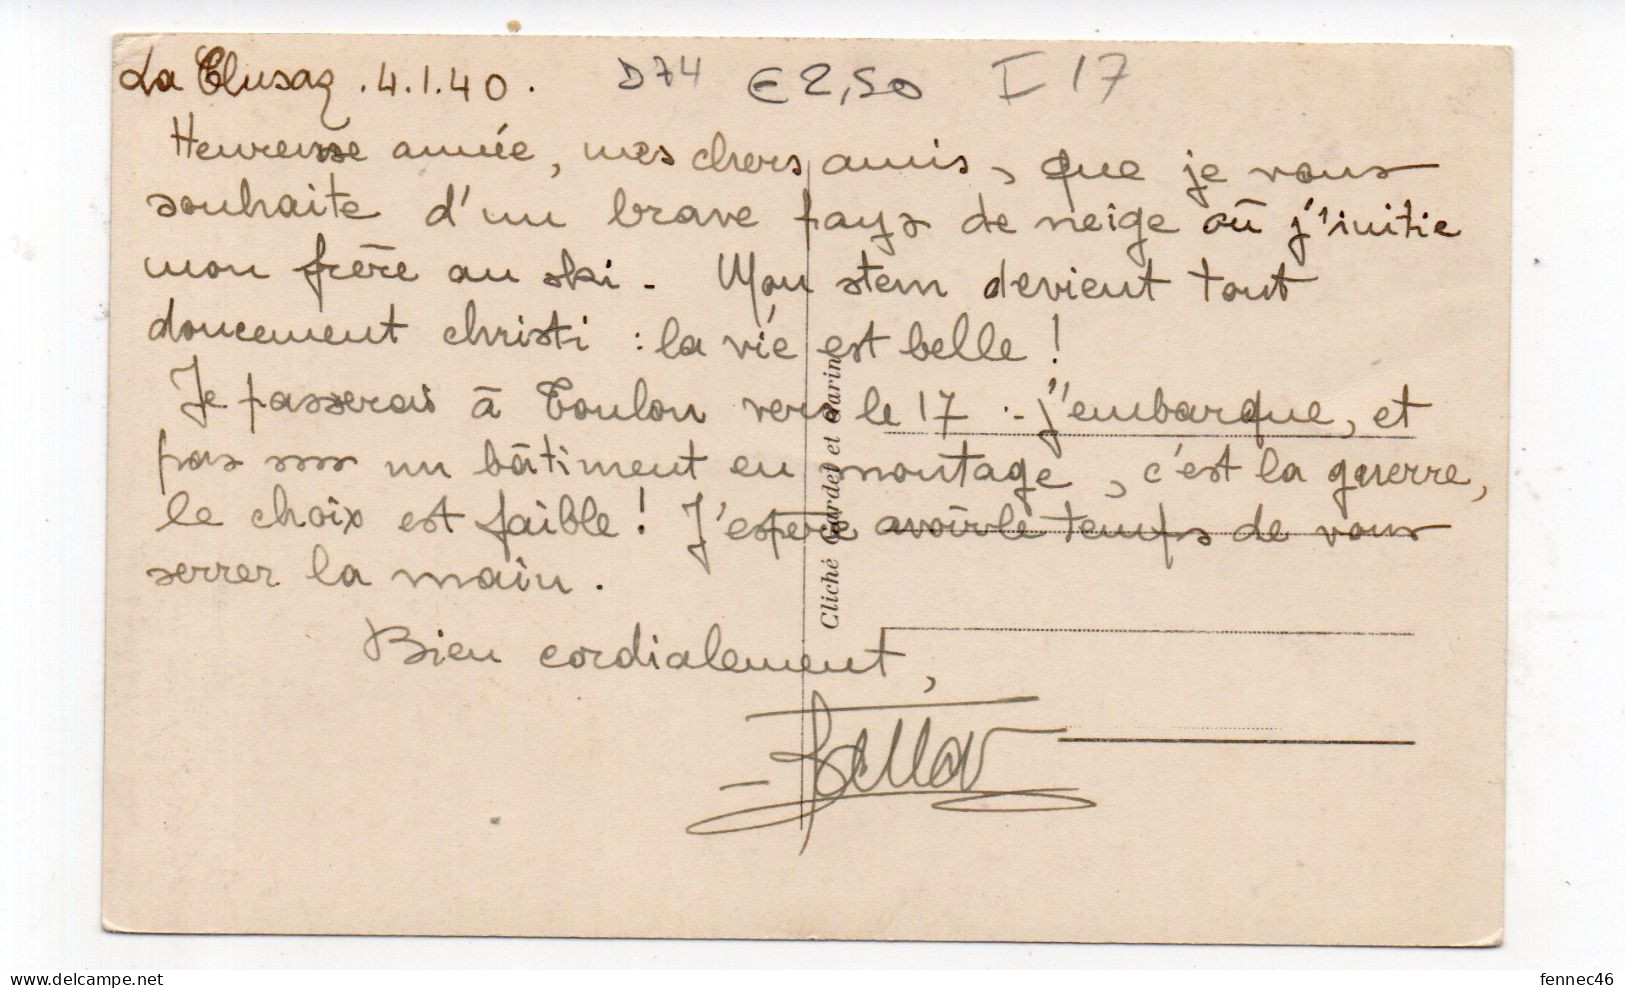 La Clusaz . 4.1.40 . D74 € 2,50 I 17
Heureuse année, mes chers amis, que je vous
souhaite d'un brave pays de neige où j'initie
mon frère au ski. Mon stem devient tout
doucement christi : la vie est belle !
Je passerai à Toulon vers le 17 .- J'embarque, et
pas sur un bâtiment en montage, c'est la guerre,
le choix est faible ! J'espère avoir le temps de vous
serrer la main .
Bien cordialement,
Cliché Gardet et Garin
delcampe.net
fennec46